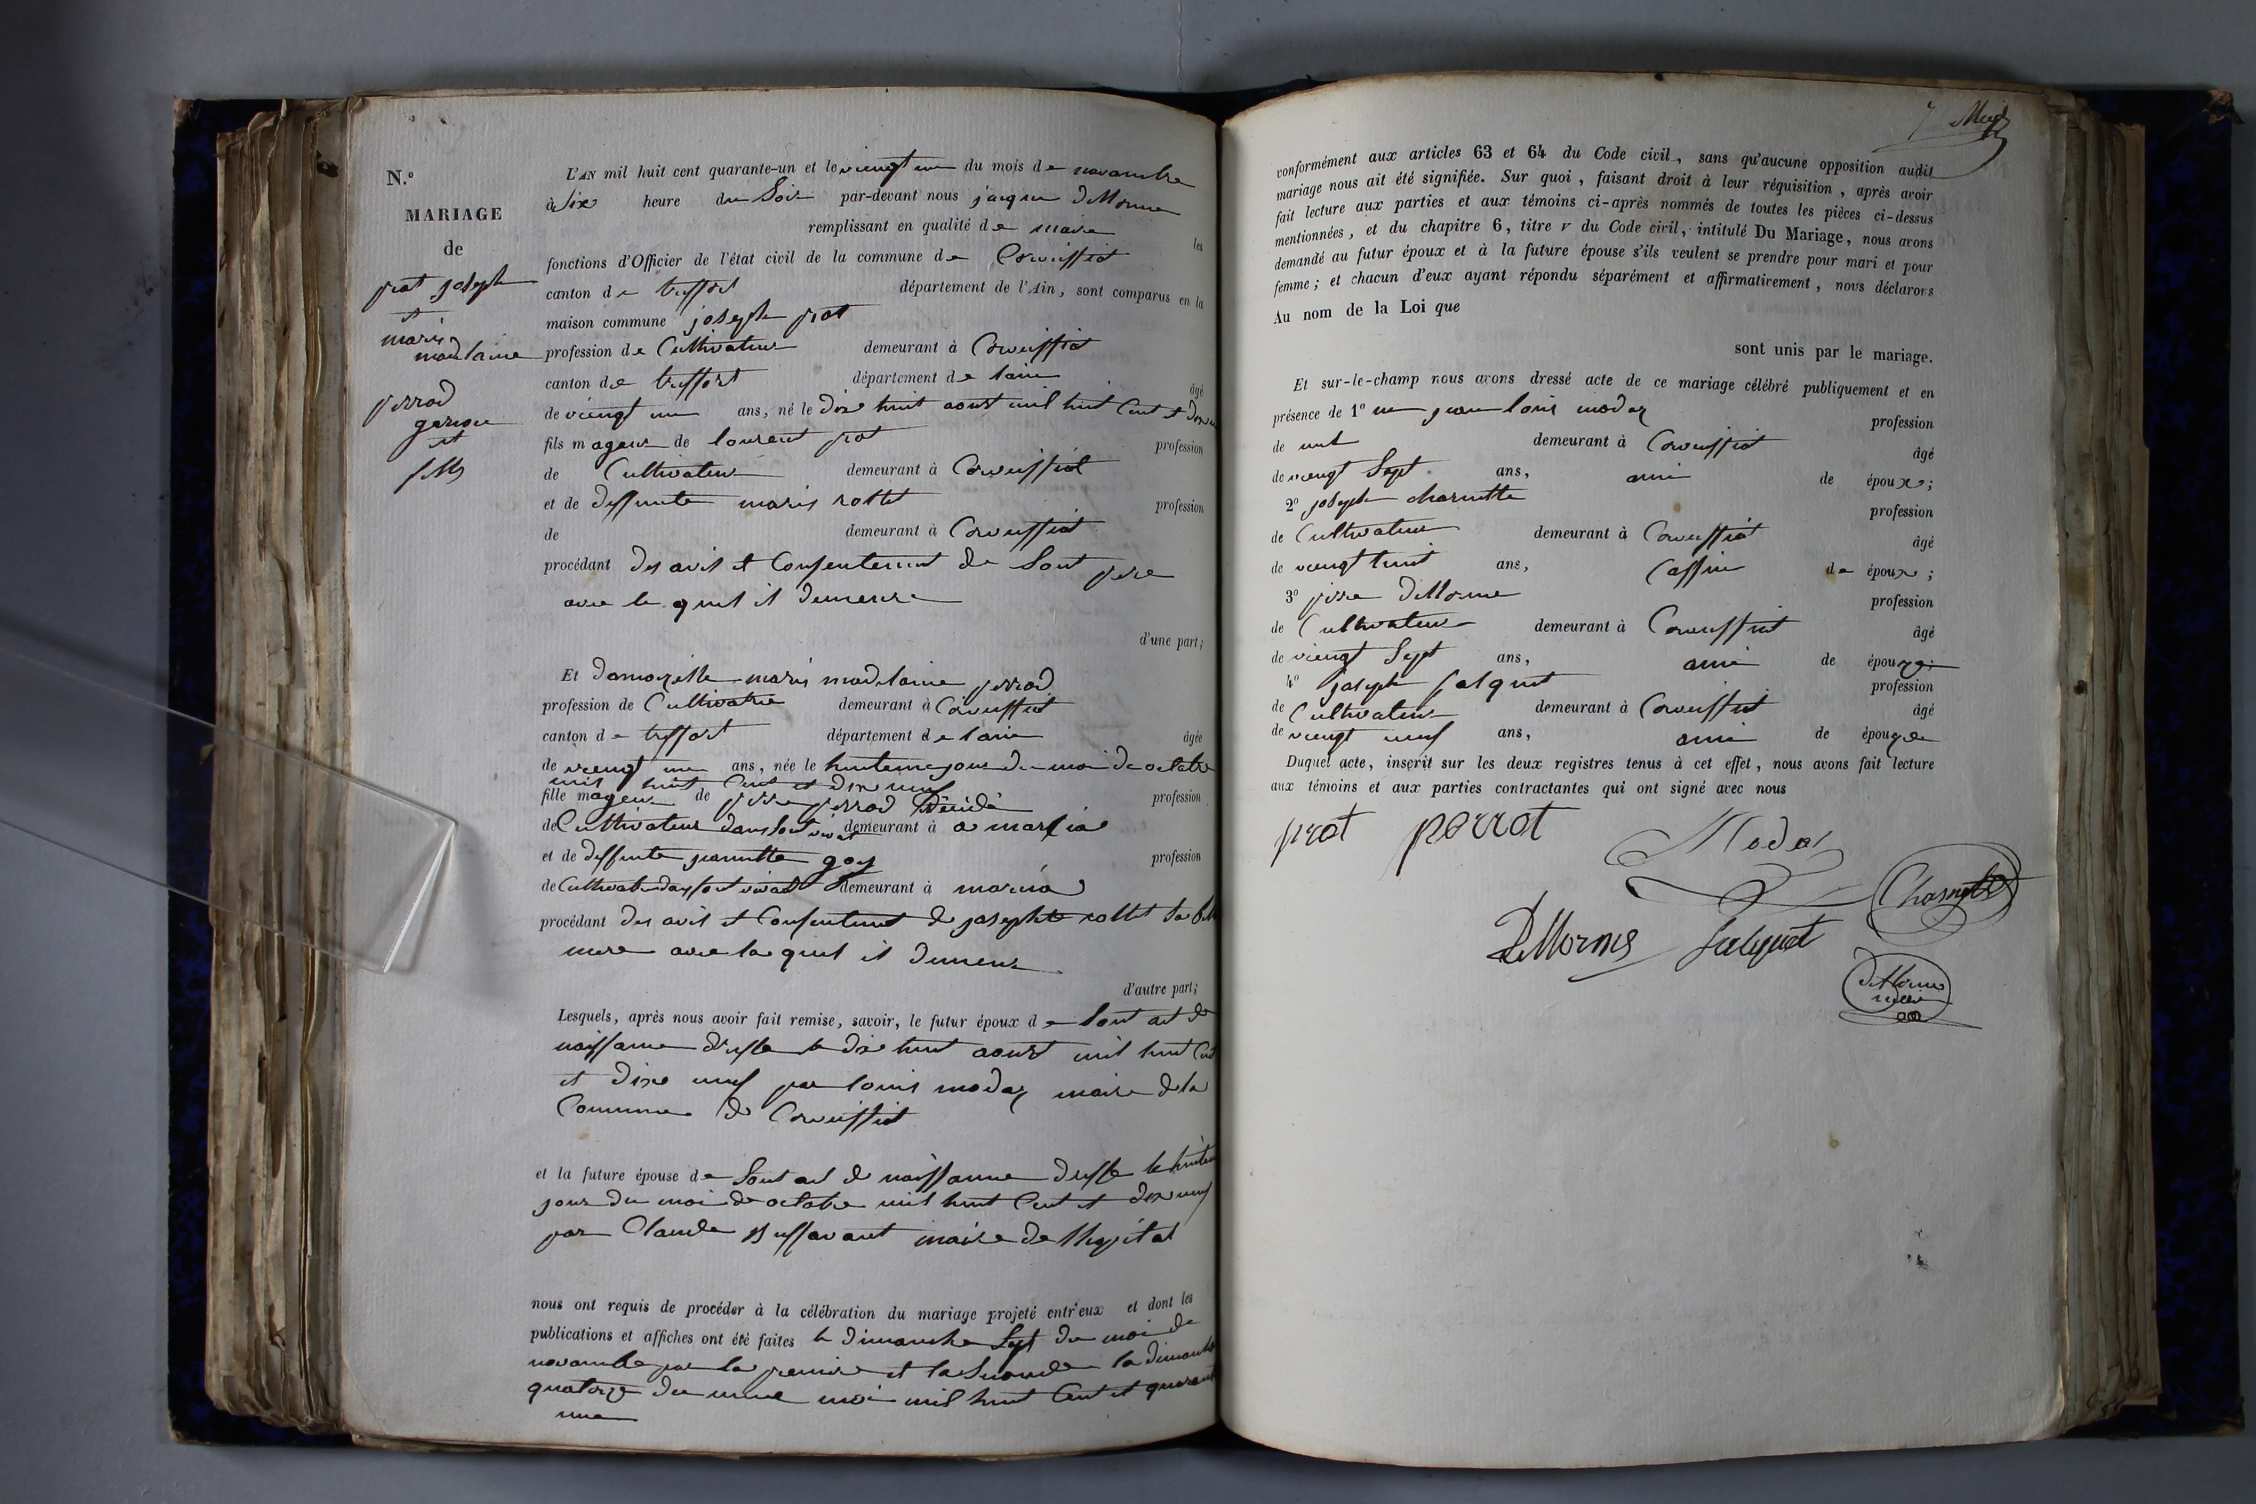 N.º
MARIAGE
de
prat joseph
et
marie
madelaine
perrod
garcon
et
fille
L'AN mil huit cent quarante-un et le viengt un du mois de novambre
à Six heure du Soir par-devant nous jacque deMorne
remplissant en qualité de maire les
fonctions d'Officier de l'état civil de la commune de Corveissiat
canton de treffort département de l'Ain, sont comparus en la
maison commune joseph prat
profession de Cultivateur demeurant à Corveissiat
canton de treffort département de lain âgé
de viengt un ans, né le dix huit aoust mil huit Cent et dix neuf
fils mageur de laurent prat profession
de Cultivateur demeurant à Corveissiat
et de deffunte marie rollet profession
de demeurant à Corveissiat
procédant des avis et Consentement de Sont pere
avec le quel il demeure
d'une part;
Et damoizelle marie madelaine perrod
profession de Cultivatrice demeurant à Corveissiat
canton de treffort département de lain âgée
de viengt un ans, née le huitieme jour du moi de octobre
mil huit Cent et dix neuf
fille mageur de pierre perrod Décédé profession
de Cultivateur dans sont vivant demeurant à a marcia
et de deffunte jeannette goy profession
de Cultivateur dans sont vivant demeurant à marcia
procédant des avis et Consentement de josephte rollet sa belle
mere avec la quel il demeure
d'autre part;
Lesquels, après nous avoir fait remise, savoir, le futur époux de Sont act de
naissance dressé le dix huit aoust mil huit Cent
et dix neuf par louis modaz maire de la
Commune de Corveissiat
et la future épouse de Sont act de naissance dressé le huitieme
jour du moi de octobre mil huit Cent et dix neuf
par Claude Buffavant maire de lhopital
nous ont requis de procéder à la célébration du mariage projeté entr'eux et dont les
publications et affiches ont été faites le dimanche Sept du moi de
novambre par la premire et la Seconde la dimanche
quatorze du meme moi mil huit Cent et quarante
une
conformément aux articles 63 et 64 du Code civil, sans qu'aucune opposition audit
mariage nous ait été signifiée. Sur quoi, faisant droit à leur réquisition, après avoir
fait lecture aux parties et aux témoins ci-après nommés de toutes les pièces ci-dessus
mentionnées, et du chapitre 6, titre v du Code civil, intitulé Du Mariage, nous avons
demandé au futur époux et à la future épouse s'ils veulent se prendre pour mari et pour
femme; et chacun d'eux ayant répondu séparément et affirmativement, nous déclarons
Au nom de la Loi que
sont unis par le mariage.
Et sur-le-champ nous avons dressé acte de ce mariage célébré publiquement et en
présence de 1º jean louis modaz profession
de demeurant à Corveissiat âgé
de viengt Sept ans, ami de époux;
2º joseph charnette profession
de Cultivateur demeurant à Corveissiat âgé
de viengt huit ans, de époux;
3º pierre deMorne profession
de Cultivateur demeurant à Corveissiat âgé
de viengt Sept ans, ami de épouze;
4º joseph jalquet profession
de Cultivateur demeurant à Corveissiat âgé
de viengt neuf ans, ami de épouze
Duquel acte, inscrit sur les deux registres tenus à cet effet, nous avons fait lecture
aux témoins et aux parties contractantes qui ont signé avec nous
prat perrot Modaz
Charnette
DeMorne jalquet
deMorne
maire